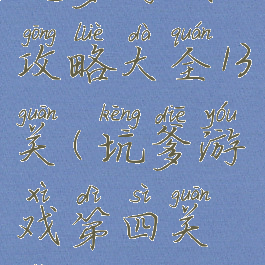 gōng lüè dà quán
攻略大全13
guān kēng diē yóu
关(坑爹游
xì dì sì guān
戏第四关